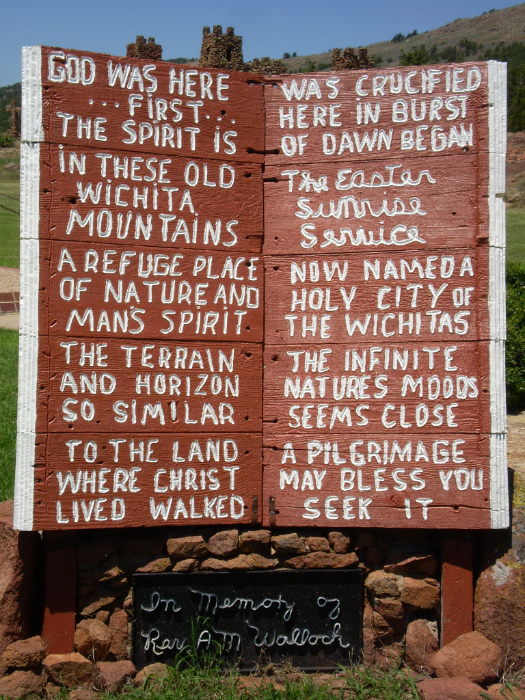 GOD WAS HERE
... FIRST...
THE SPIRIT IS
IN THESE OLD
WICHITA
MOUNTAINS
A REFUGE PLACE
OF NATURE AND
MAN'S SPIRIT
THE TERRAIN
AND HORIZON
SO SIMILAR
TO THE LAND
WHERE CHRIST
LIVED WALKED
WAS CRUCIFIED
HERE IN BURST
OF DAWN BEGAN
The Easter
Sunrise
Service
NOW NAMED A
HOLY CITY OF
THE WICHITAS
THE INFINITE
NATURES MOODS
SEEMS CLOSE
A PILGRIMAGE
MAY BLESS YOU
SEEK IT
In Memory of
Rev. A M Walloch